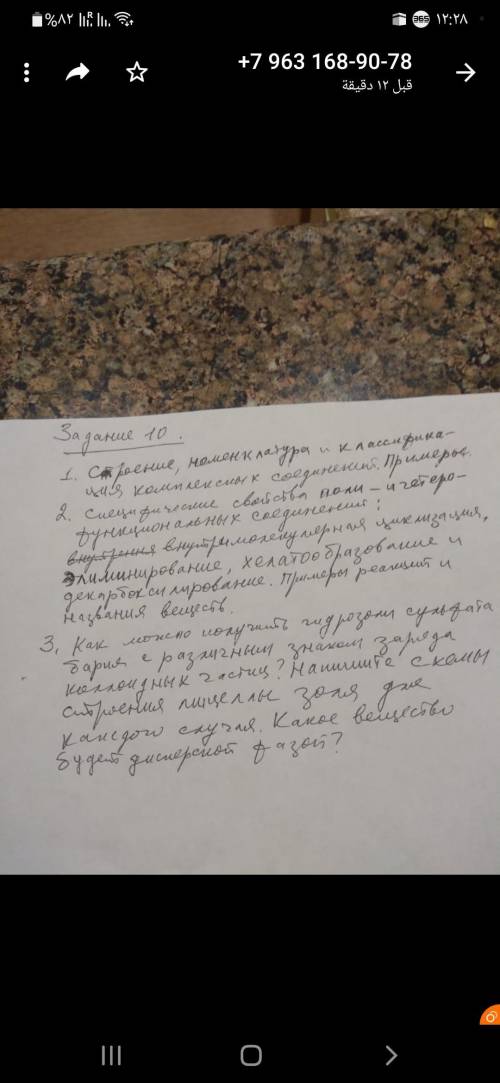 %٨٢
365
١٢:٢٨
+7 963 168-90-78
قبل ١٢ دقيقة
Задание 10.
1. Строение, номенклатура и классифика-
ция комплексных соединений. Примеры.
2. Специфические свойства поли- и гетеро-
функциональных соединений:
внутримолекулярная циклизация,
элиминирование, хелатообразование и
декарбоксилирование. Примеры реакций и
названия веществ.
3, Как можно получить гидрозоли сульфата
бария с различным знаком заряда
коллоидных частиц? Напишите схемы
строения мицеллы золя для
каждого случая. Какое вещество
будет дисперсной фазой?